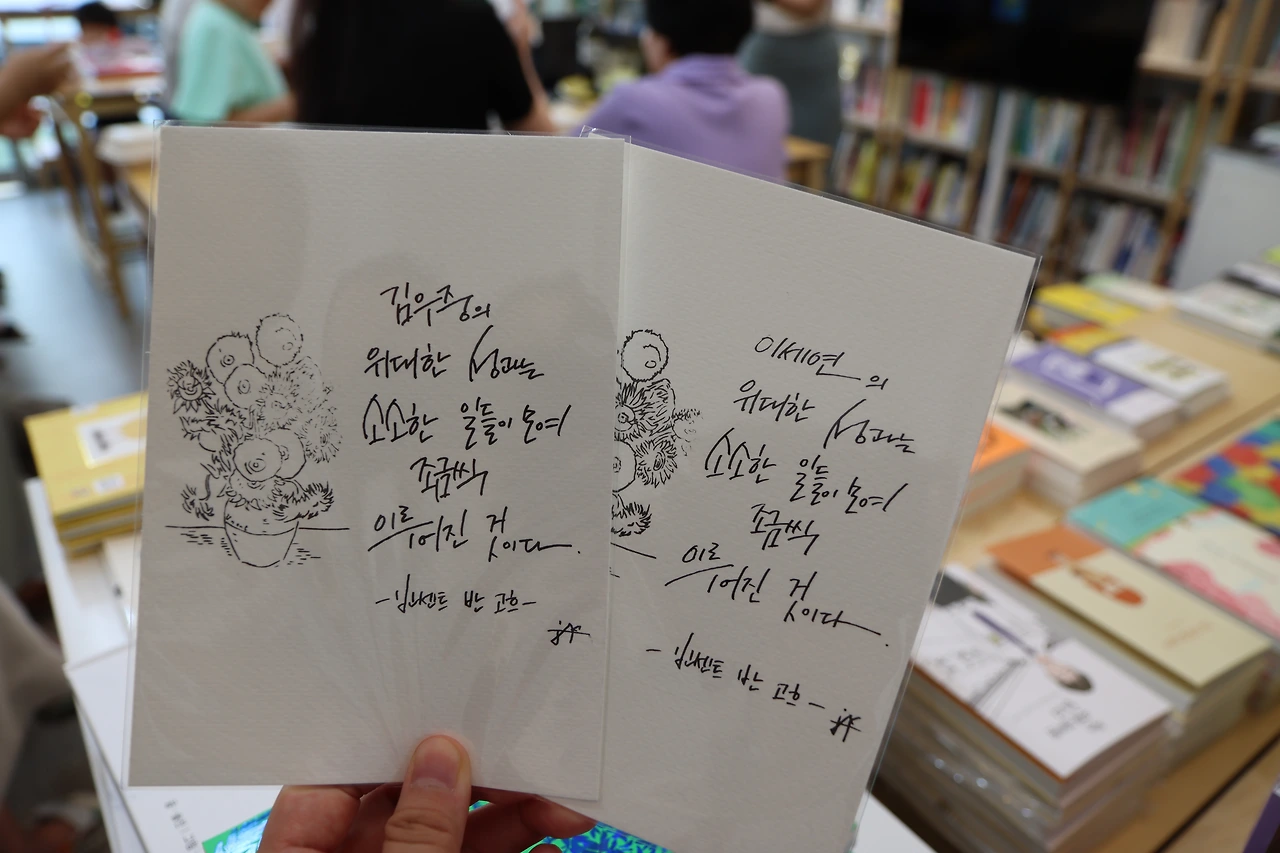 김우중의
위대한 성과는
소소한 일들이 모여
조금씩
이루어진 것이다.
-빈센트 반 고흐-
이세연의
위대한 성과는
소소한 일들이 모여
조금씩
이루어진 것이다.
-빈센트 반 고흐-